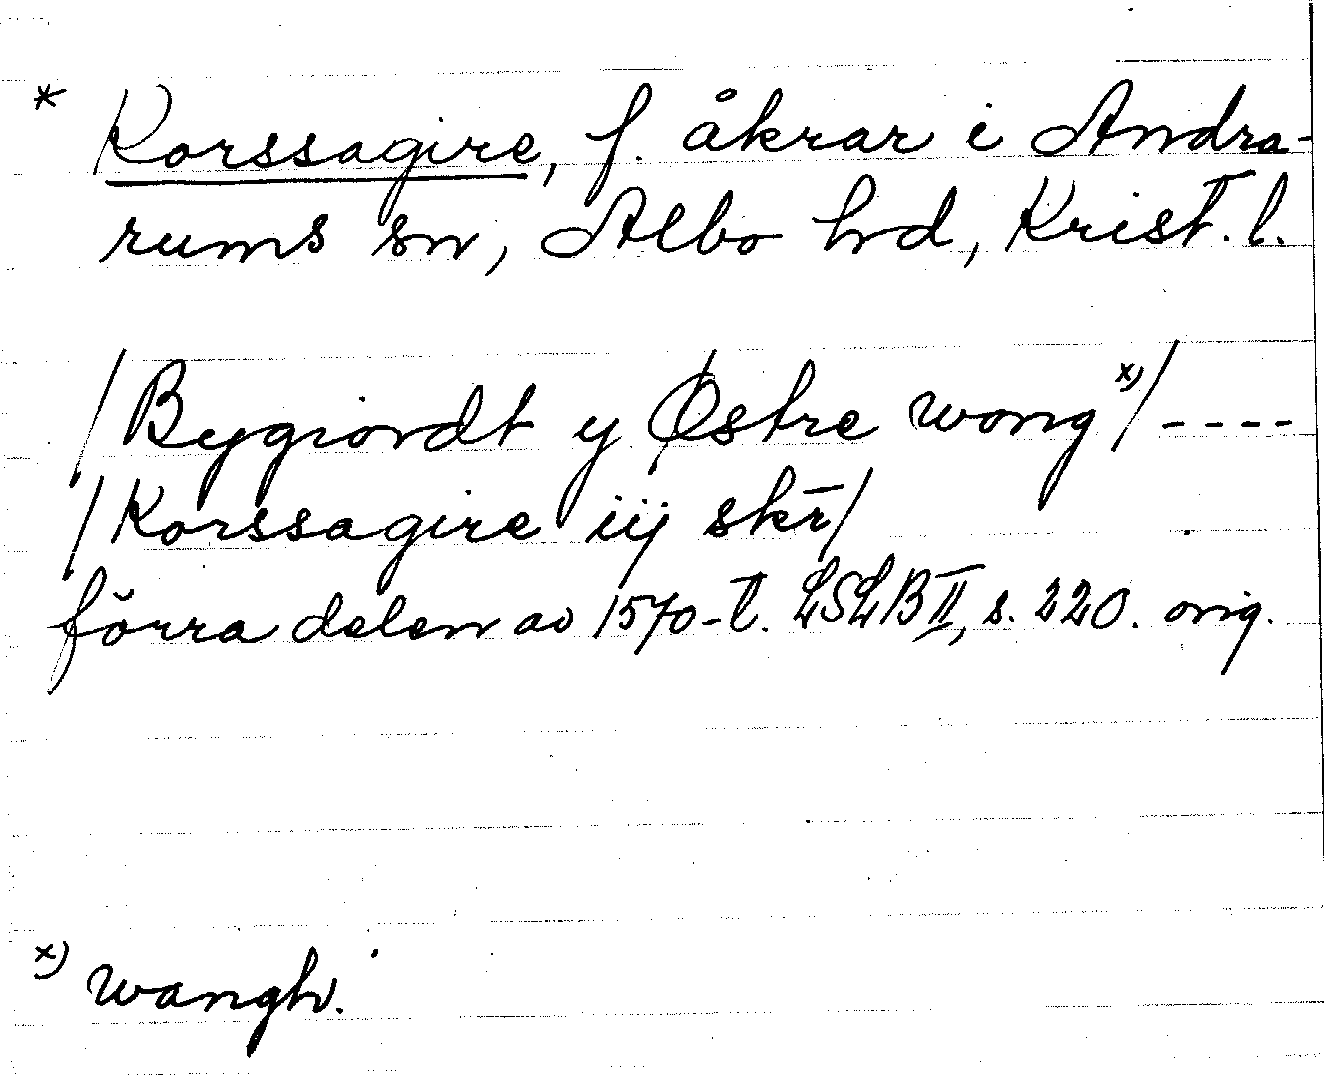 * Korssagire, f. åkrar i Andra-
rums sn, Albo hd, Krist. l.
/Bygiordt y Østre wong x)/ ----
/Korssagire iij skr̄/
förra delen av 1570-t. LSLB II, s. 220. orig.
x) wangh.